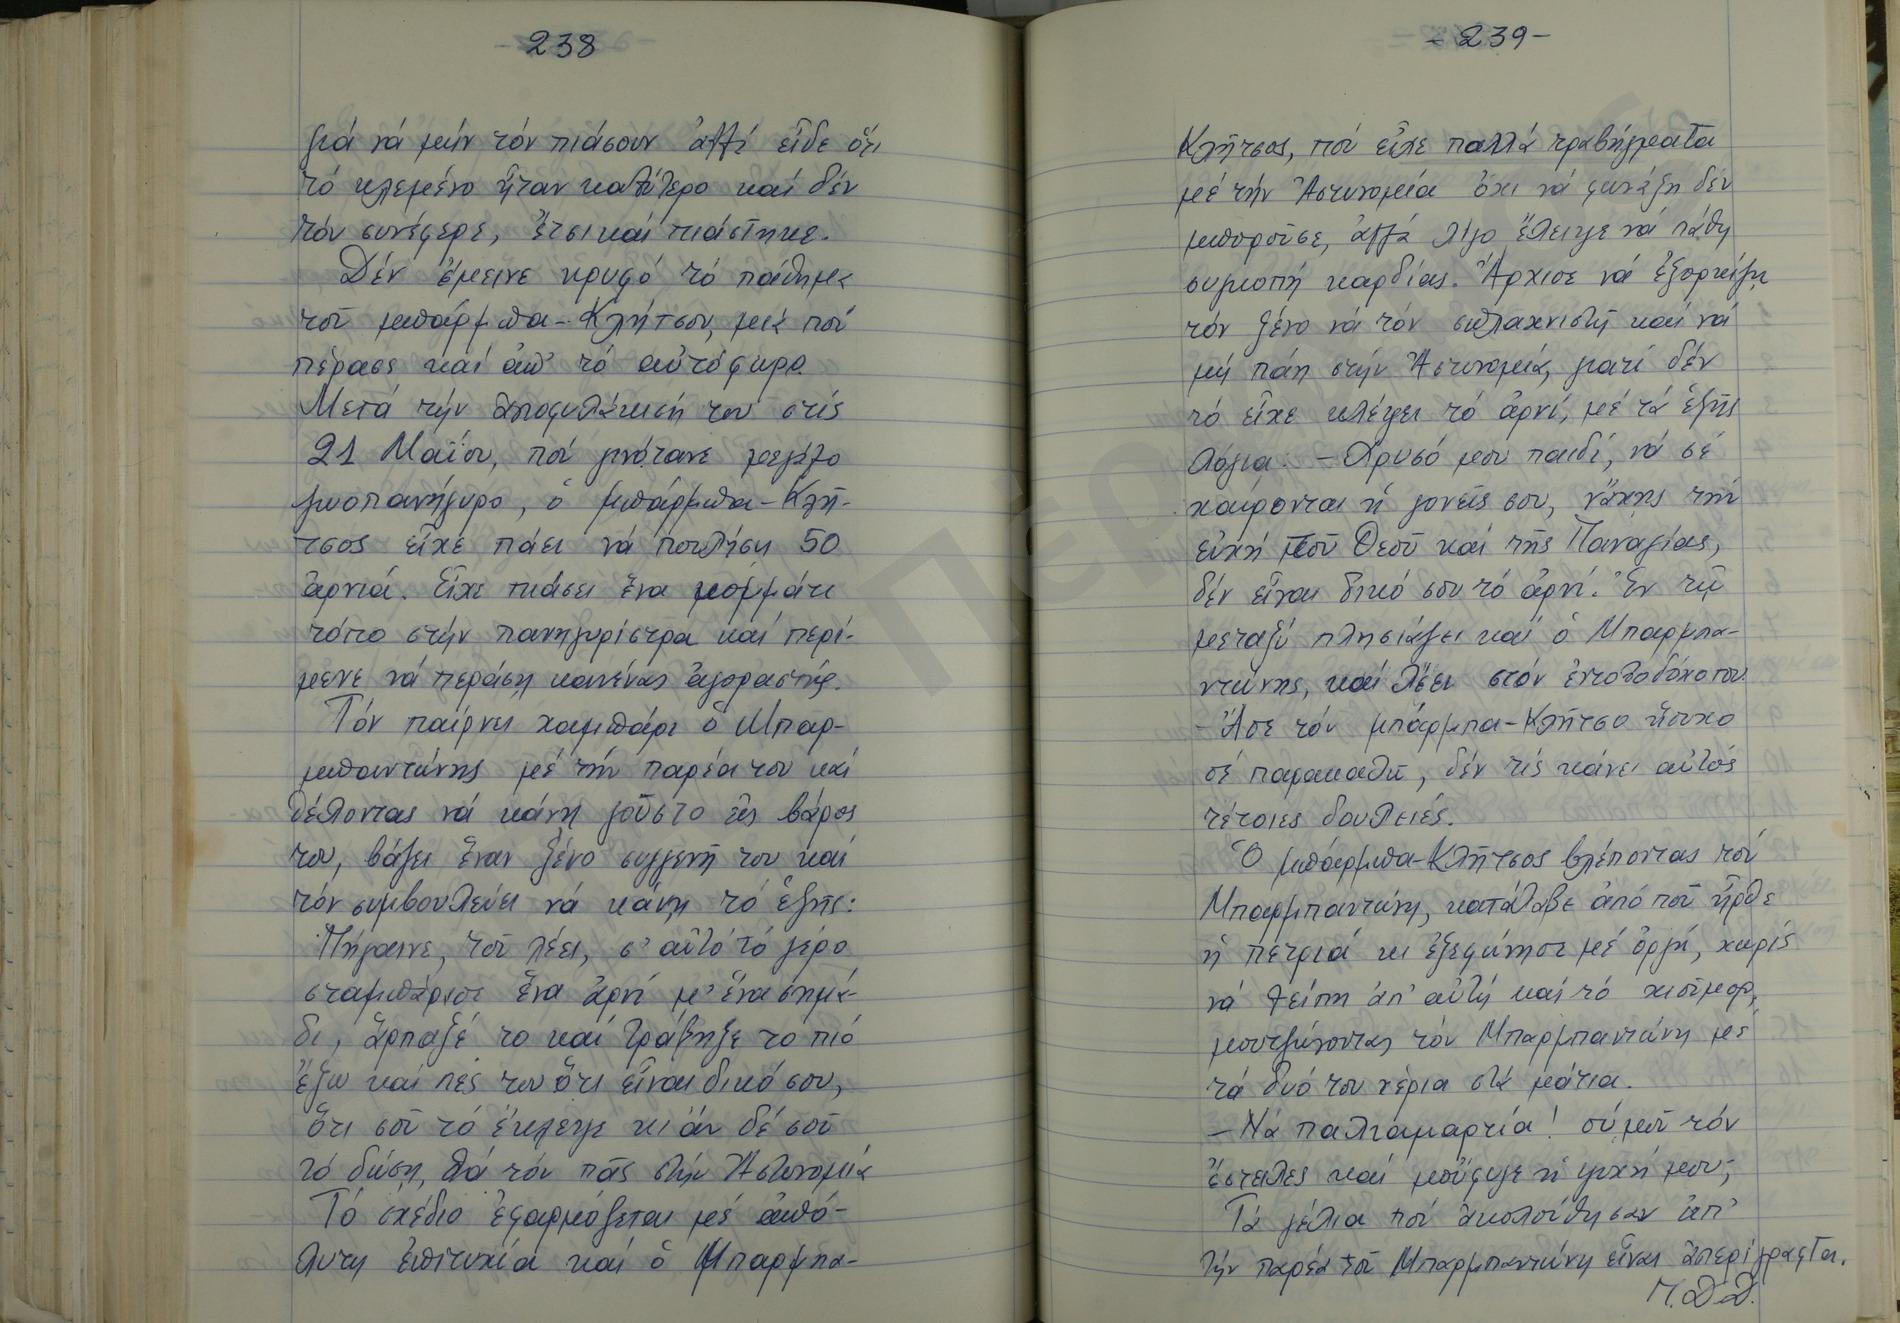 - 238
γιά νά μήν τόν πιάσουν ἀλλά εἶδε ὅτι
τό κλεμένο ἦταν καλύτερο καί δέν
τόν συνέφερε, ἔτσι καί πιάστηκε.
Δέν ἔμεινε κρυφό τό πάθημα
τοῦ μπάρμπα-Κλήτσου, μιά πού
πέρασε καί ἀπ' τό αὐτόφωρο
Μετά τήν ἀποφυλάκισή του στίς
21 Μαΐου, πού γινότανε μεγάλο
ζωοπανήγυρο, ὁ μπάρμπα-Κλή-
τσος εἶχε πάει νά πουλήση 50
ἀρνιά. Εἶχε πιάσει ἕνα κομμάτι
τόπο στήν πανηγυρίστρα καί περί-
μενε νά περάση κανένας ἀγοραστής.
Τόν παίρνει χαμπάρι ὁ Μπαρ-
μπαντώνης μέ τήν παρέα του καί
θέλοντας νά κάνη γοῦστο εἰς βάρος
του, βάζει ἕναν ξένο συγγενή του καί
τόν συμβουλεύει νά κάνη τό ἑξῆς:
Πήγαινε, τοῦ λέει, σ' αὐτό τό γέρο
σταμπάρισε ἕνα ἀρνί μ' ἕνα σημά-
δι, ἅρπαξέ το καί τράβηξε το πιό
ἔξω καί πές του ὅτι εἶναι δικό σου,
ὅτι σοῦ τό ἔκλεψε κι ἄν δέ σοῦ
τό δώση, θά τόν πᾶς στήν Ἀστυνομία
Τό σχέδιο ἐφαρμόζεται μέ ἀπό-
λυτη ἐπιτυχία καί ὁ Μπαρμπα-
- 239 -
Κλῆτσος, πού εἶχε πολλά τραβήγματα
μέ τήν Ἀστυνομία ὄχι νά φωνάξη δέν
μποροῦσε, ἀλλά λίγο ἔλειψε νά πάθη
συγκοπή καρδίας. Ἄρχισε νά ἐξορκίζη
τόν ξένο νά τόν σπλαχνιστῆ καί νά
μή πάη στήν Ἀστυνομία, γιατί δέν
τό εἶχε κλέψει τό ἀρνί, μέ τά ἑξῆς
λόγια: - Χρυσό μου παιδί, νά σέ
χαίρονται ἡ γονεῖς σου, νἄχης τήν
εὐχή τοῦ Θεοῦ καί τῆς Παναγίας,
δέν εἶναι δικό σου τό ἀρνί. Ἐν τῷ
μεταξύ πλησιάζει καί ὁ Μπαρμπα-
ντώνης, καί λέει στόν ἐντολοδόχο του
- Ἄσε τόν μπάρμπα-Κλῆτσο ἥσυχο
σέ παρακαλῶ, δέν τίς κάνει αὐτός
τέτοιες δουλειές.
Ὁ μπάρμπα-Κλῆτσος βλέποντας τόν
Μπαρμπαντώνη, κατάλαβε ἀπό ποῦ ἦρθε
ἡ πετριά κι ἐξεφώνησε μέ ὀργή, χωρίς
νά λείπη ἀπ' αὐτή καί τό χιοῦμορ,
μουτζώνοντας τόν Μπαρμπαντώνη μέ
τά δυό του χέρια στά μάτια.
- Νά παλιαμαρτία! σύ μοῦ τόν
ἔστειλες καί μοὔφυγε ἡ ψυχή μου;
Τά γέλια πού ἀκολούθησαν ἀπ'
τήν παρέα τοῦ Μπαρμπαντώνη εἶναι ἀπερίγραπτα.
Π.Δ.Δ.